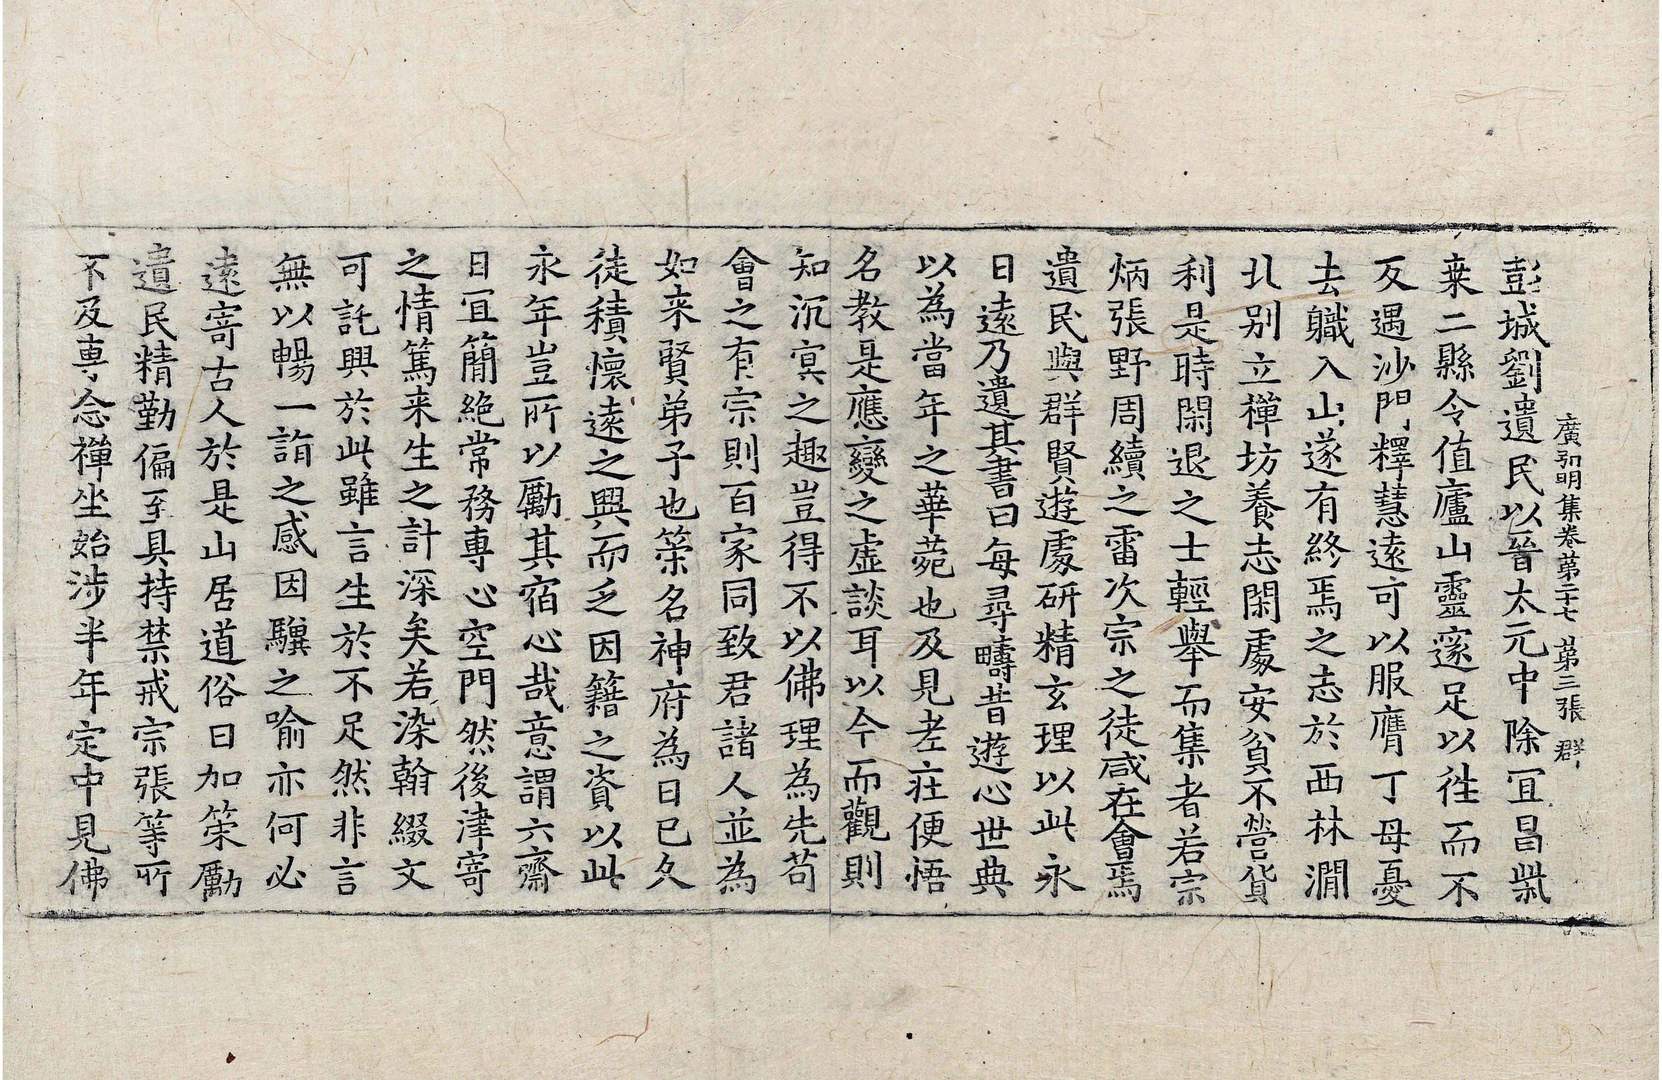 廣弘明集卷第二十七 第三張 群
彭城劉遺民以晉太元中除宜昌柴
桒二縣令值廬山靈邃足以徃而不
反遇沙門釋慧遠可以服膺丁母憂
去職入山遂有終焉之志於西林澗
北別立禪坊養志閑處安貧不營貨
利是時閑退之士輕舉而集者若宗
炳張野周續之雷次宗之徒咸在會焉
遺民與群賢遊處研精玄理以此永
日遠乃遺其書曰每尋疇昔遊心世典
以為當年之華菀也及見老庄便悟
名教是應變之虛談耳以今而觀則
知沉冥之趣豈得不以佛理為先苟
會之有宗則百家同致君諸人並為
如来賢弟子也策名神府為日已久
徒積懷遠之興而乏因籍之資以此
永年豈所以勵其宿心哉意謂六齋
日宜簡絶常務專心空門然後津寄
之情篤来生之計深矣若染翰綴文
可託興於此雖言生於不足然非言
無以暢一詣之感因驥之喻亦何必
遠寄古人於是山居道俗日加策勵
遺民精勤偏至具持禁戒宗張等所
不及專念禪坐始涉半年定中見佛